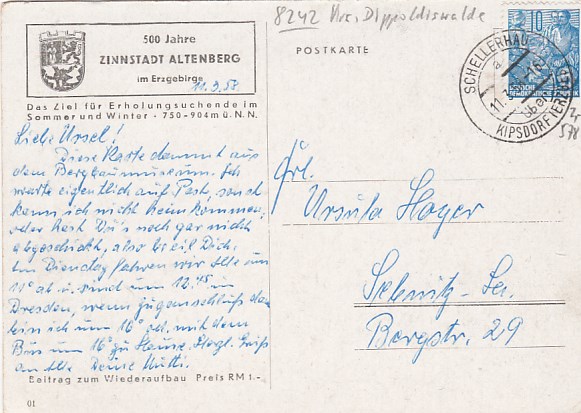 8242 Krs. Dippoldiswalde
500 Jahre
ZINNSTADT ALTENBERG
im Erzgebirge
11.3.58
Das Ziel für Erholungsuchende im
Sommer und Winter · 750-904 m ü. N. N.
POSTKARTE
10
DEUTSCHE
DEMOKRATISCHE
SCHELLERHAU
über
KIPSDORF (ERZGEB)
578
Liebe Ursel!
Diese Karte stammt aus
dem Bergbaumuseum. Ich
warte eigentlich auf Post, sonst
kann ich nicht heimkommen,
oder hast Du's noch gar nicht
abgeschickt, also beeil Dich.
Am Dienstag fahren wir alle um
11° ab u. sind um 12.45 in
Dresden, wenn Zuganschluß da
bin ich um 16° od. mit dem
Bus um 16° zu Hause. Herzl. Grüße
an alle Deine Mutti.
Frl.
Ursula Hoyer
Sebnitz-Sa.
Bergstr. 29
Beitrag zum Wiederaufbau Preis RM 1.-
01